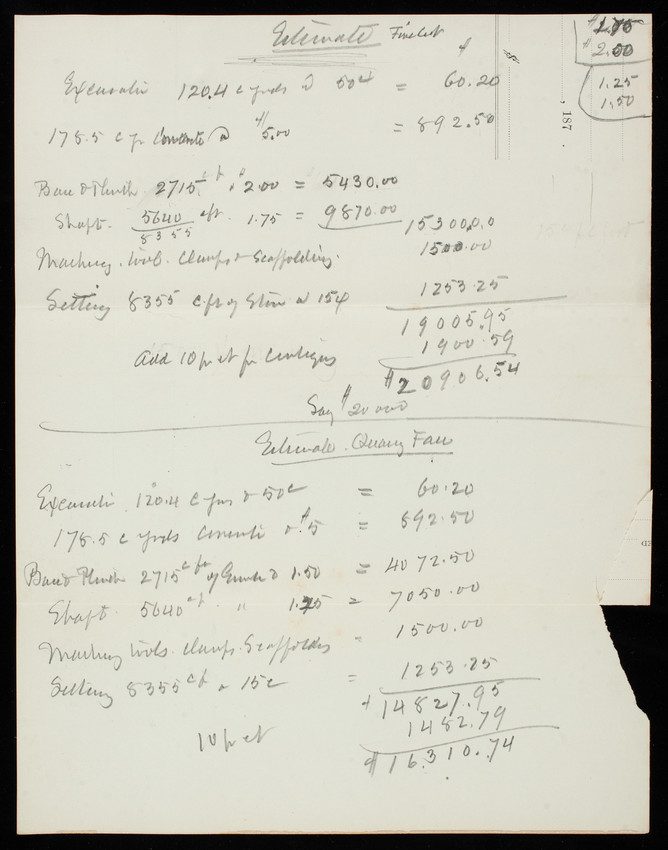 Estimate Finest
$ 1.75
$ 2.00
1.25
1.50
, 187 .
$ $
Excavatin 120.4 c yards @ 50c = 60.20
178.5 c y Concrete @ $5.00 = 892.50
Base & Plinth. 2715 cf. $2.00 = 5430.00
Shaft. 5640 cft. 1.75 = 9870.00 153000.0
8355
Machiny. tools. Clamps & Scaffolding. 1500.00
Setting 8355 c.ft of Stone @ 15c 1253.25
19005.95
Add 10 pr ct for Contigns 1900.59
$20906.54
Say $20000
Estimate. Quarry Face
Excavatin 120.4 c yds @ 50c = 60.20
178.5 c yards Concrete @ $5 = 892.50
Base & Plinth 2715 c ft of Granite @ 1.50 = 4072.50
Shaft. 5640 cf. " 1.25 = 7050.00
Machiny tools. clamps. Scaffolding - 1500.00
Setting 8355 cf @ 15c = 1253.25
$14827.95
10 pr ct 1482.79
$16,310.74